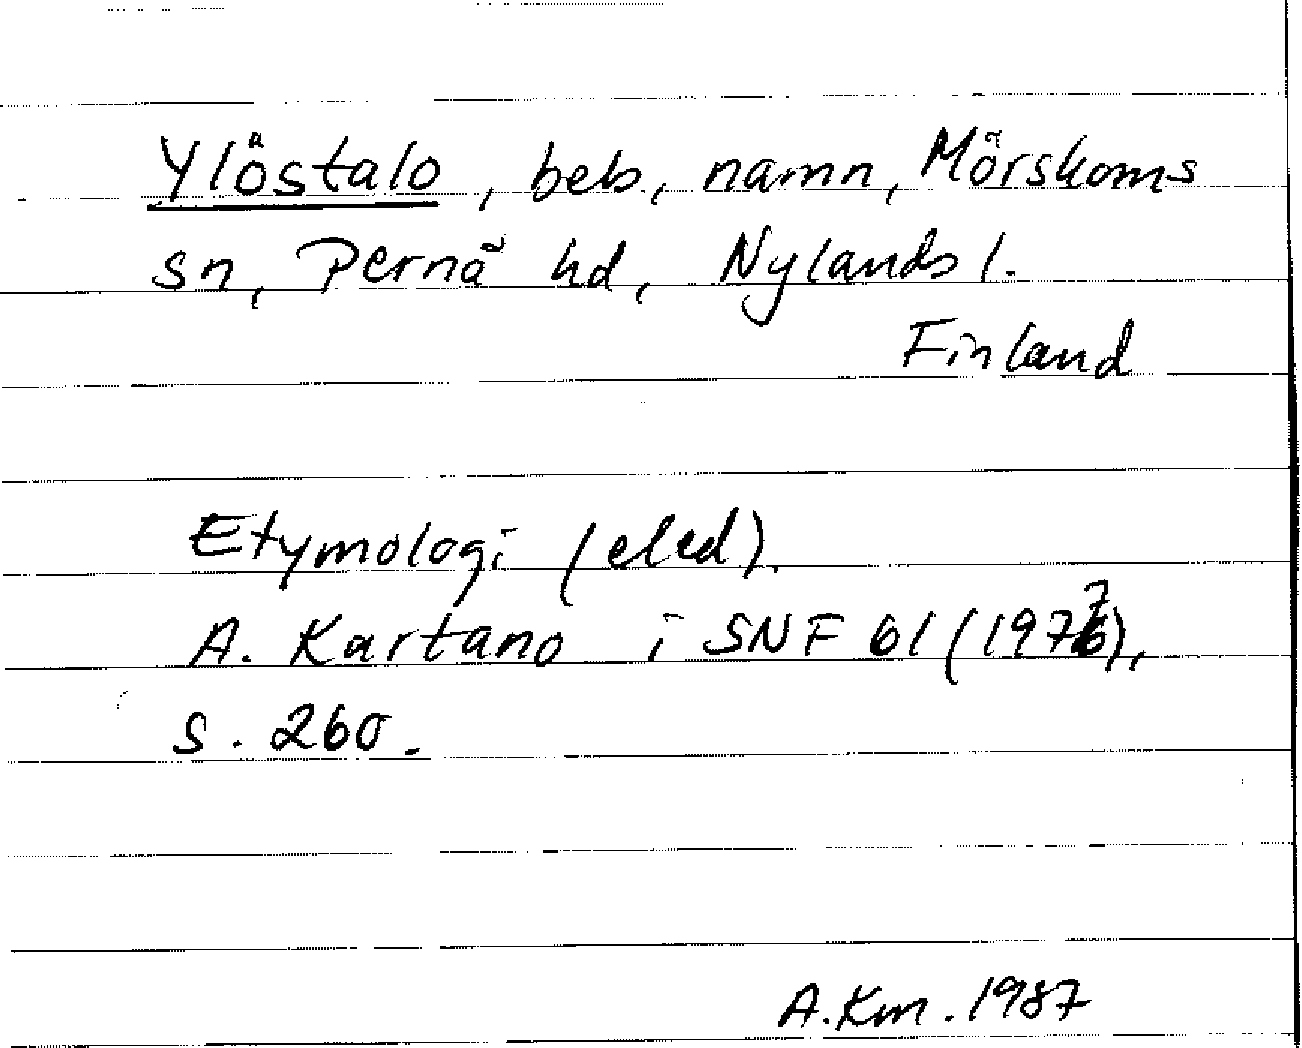 Ylöstalo, beb, namn, Mörskoms
sn, Pernå hd, Nylands l.
Finland
Etymologi (eled).
A. Kartano i SNF 61 (1977),
s. 260.
A.Km. 1987